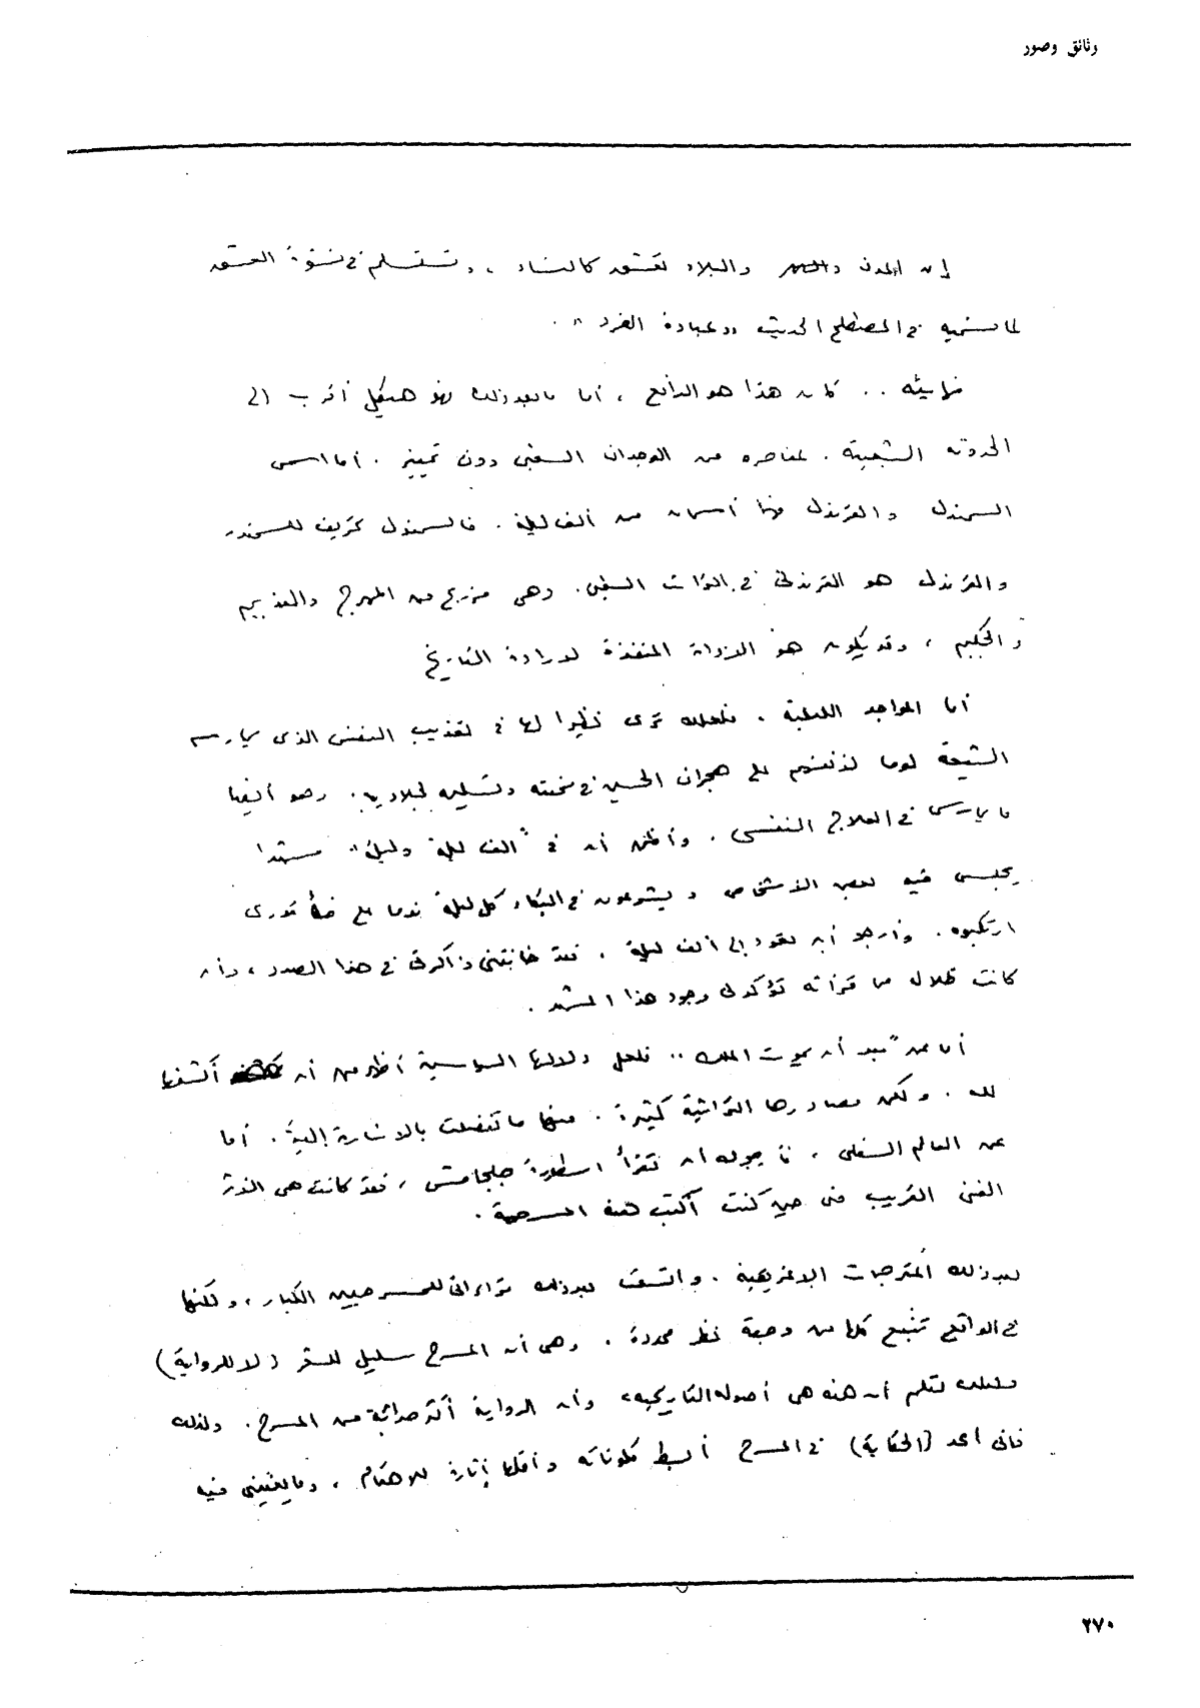 وثائق وصور
إن المدن والبلاد تعشق كالنساء ، وتستسلم في نشوة العشق
لما نسميه في المصطلح الحديث " عبادة الفرد " .
تراثيته .. كان هذا هو الدافع ، أما ما بعد ذلك فهو هيكل أقرب إلى
الحدوته الشعبية . عناصره من الوجدان الشعبي دون تمييز . أما اسمى
السمندل والقرندل فهما اسمان من ألف ليلة . فالسمندل تحريف للسمندر
والقرندل هو القرندلي في التراث الشعبي . وهي مزيج من المهرج والنديم
والحكيم ، وقد يكون هو الأداة المنفذة لإرادة التاريخ
أما المواجد الليلية . فلعلك ترى نظيرا لها في تعذيب النفس الذي يمارسه
الشيعة لوما لأنفسهم على هجران الحسين في محنته وتسليمه لجلاديه . وهو أيضا
ما يمارس في العلاج النفسي . وأظن أن في " ألف ليلة وليلة " مشهدا
يجلس فيه بعض الأشخاص ويشرعون في البكاء كل ليلة ندما على خطأ قدرى
ارتكبوه . وأرجو أن نعود إلى ألف ليلة . فقد خانتني ذاكرتي في هذا الصدد ، وإن
كانت ظلال مما قرأته تؤكد لي وجود هذا المشهد .
أما عن " بعد أن يموت الملك " فلعل دلالتها السياسية أظهر من أن أكشفها
لك . ولكن مصادرها التراثية كثيرة . منها ما تفضلت بالاشارة إليه . أما
عن العالم السفلي ، فأرجوك أن تقرأ اسطورة جلجامش ، فقد كانت هي الزاد
الفني القريب مني حين كنت أكتب هذه المسرحية .
بعد ذلك المترجمات الإغريقية . واتسعت بعد ذلك قراءاتي للمسرحيين الكبار ، ولكنها
في الواقع تنبع كلها من وجهة نظر محددة . وهي أن المسرح سليل للشعر ( لا للرواية )
فلعلك تعلم أن هذه هي أصوله التاريخية ، وأن الرواية أكثر حداثة من المسرح . ولذلك
فاني أعد ( الحكاية ) في المسرح أبسط مكوناته وأقلها إثارة للاهتمام ، وما يعنيني فيه
٢٧٠